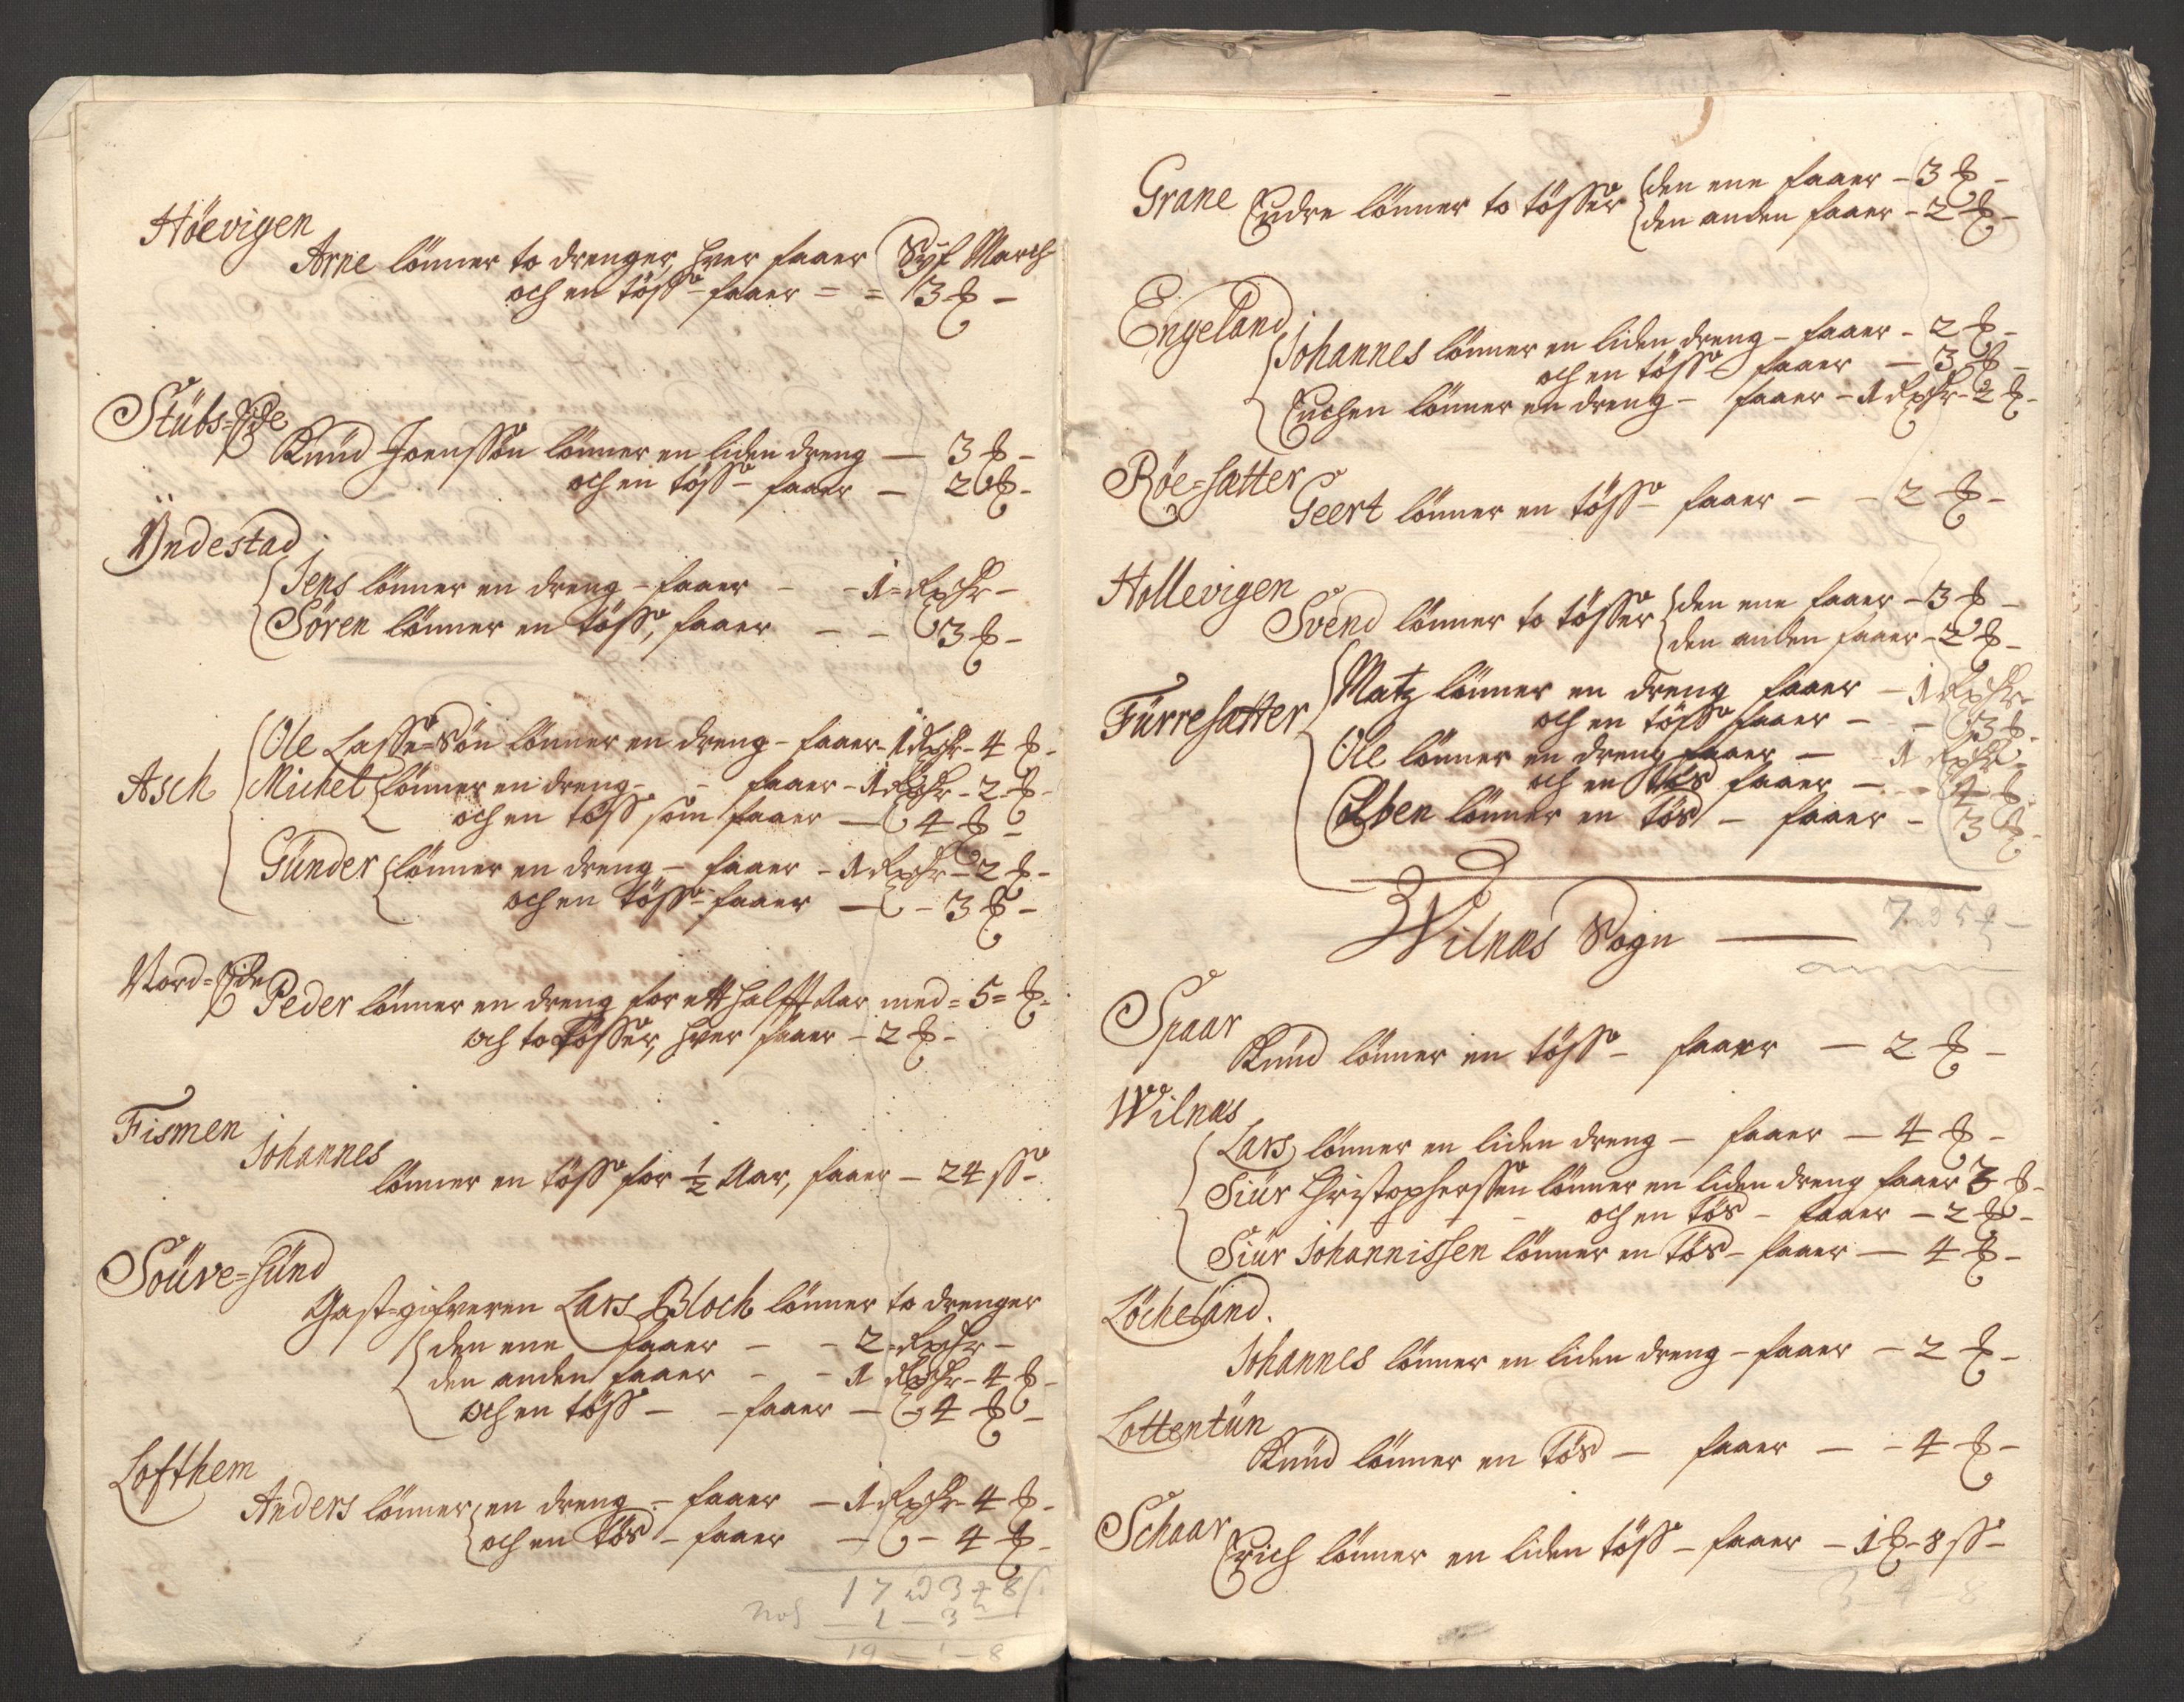 Höevigen
Arne lönner to drenger, hver faaer Syf March
och en töss faaer = = 3 ℔ -
Stübs=Eide
Knüd Joenssön lönner en liden dreng — 3 ℔ -
och en töss - faaer — 2 ℔ -
Ÿndestad
Jens lönner en dreng - faaer - - 1 = Rixdr -
Sören lönner en töss, faaer - - 3 ℔ -
Asch
Ole Lasse=Sön lönner en dreng - faaer - 1 Rixdr - 4 ℔ -
Michel lönner en dreng - - faaer - 1 Rixdr - 2 ℔ -
och en töss som faaer — 4 ℔ -
Günder lönner en dreng - faaer - 1 Rixdr - 2 ℔ -
och en töss - faaer — - 3 ℔ -
Nord=Eide Peder lönner en dreng for ett halfft Aar med = 5 = ℔ -
och to Tösser, hver faaer - 2 ℔ -
Fismen
Johannes
lönner en töss for ½ Aar, faaer - 24 ss -
Soüve=sünd
Gast=gifveren Lars Bloch lönner to drenger
den ene faaer - - 2 = Rixdr -
den anden faaer - - 1 Rixdr - 4 ℔ -
och en töss - - faaer — 4 ℔ -
Lofthem
Anders lönner en dreng - faaer - 1 Rixdr - 4 ℔ -
och en tös - faaer — - 4 ℔ -
17 rd 3 ℔ 8 s.
noch 1 - 3 -
19 - 1 - 8
Grane Endre lönner to tösser den ene faaer - 3 ℔ -
den anden faaer - 2 ℔ -
Engeland
Johannes lönner en liden dreng - faaer - 2 ℔ -
och en töss faaer — 3 ℔ -
Enchen lönner en dreng - faaer - 1 Rixdr - 2 ℔ -
Röe=satter
Geert lönner en töss - faaer - - 2 ℔ -
Hollevigen
Svend lönner to tösser den ene faaer - 3 ℔ -
den anden faaer - 2 ℔ -
Fürresatter
Matz lönner en dreng faaer — 1 Rixdr -
och en töss faaer - - 3 ℔ -
Ole lönner en dreng faaer — 1 Rixdr -
och en tös faaer — - 4 ℔ -
Esben lönner en tös - faaer - 3 ℔ -
7 rd 5 ℔ -
Wilnæs Sogn
Spaar
Knüd lönner en töss - faaer — 2 ℔ -
Wilnæs
Lars lönner en liden dreng - faaer — 4 ℔ -
Siür Christopherssen lönner en liden dreng faaer 3 ℔ -
och en tös - faaer - 2 ℔ -
Siür Johannissen lönner en tös - faaer — 4 ℔ -
Löcheland.
Johannes lönner en liden dreng - faaer - 2 ℔ -
Lottentün
Knüd lönner en tös - faaer - - 4 ℔ -
Schaar
Erich lönner en liden töss - faaer - 1 ℔ - 8 ss -
3 - 4 - 8